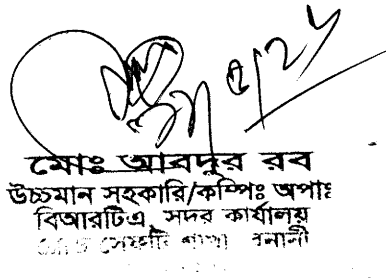 মোঃ আবদুর রব
উচ্চমান সহকারি/কম্পিঃ অপাঃ
বিআরটিএ, সদর কার্যালয়
রোড সেফটি শাখা বনানী